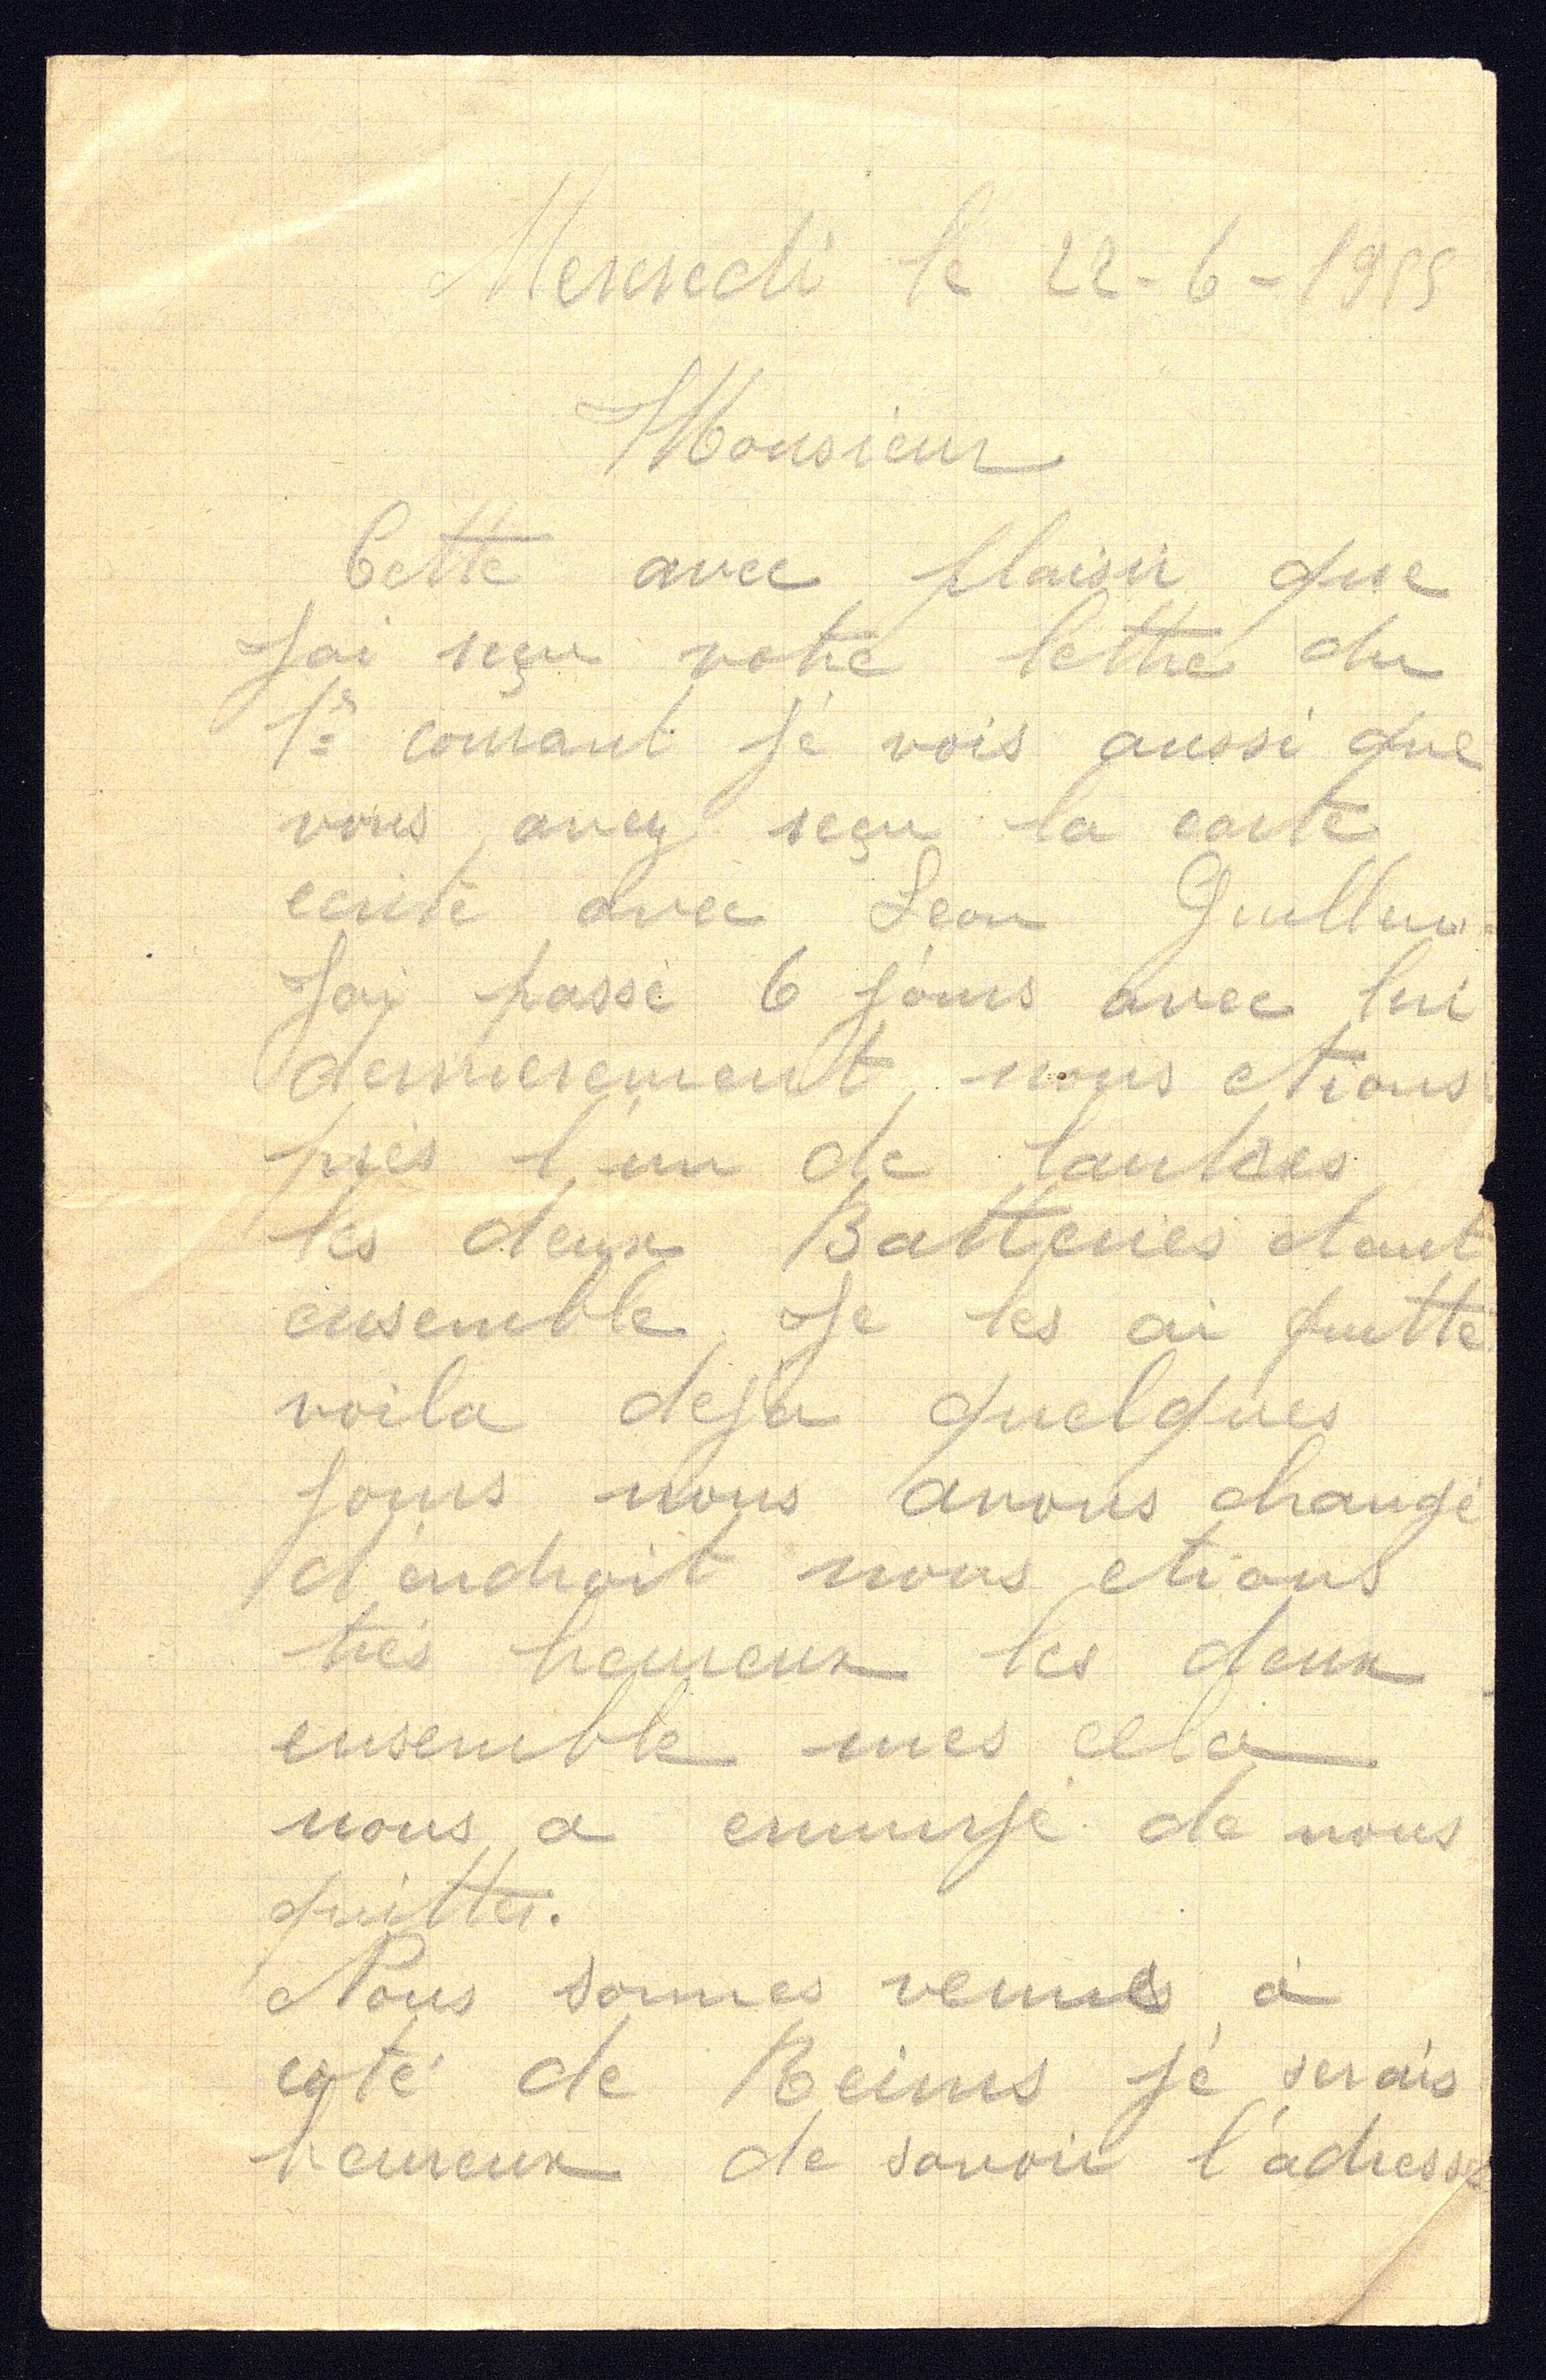 Mercredi le 22-6-1915
Monsieur
Cette avec plaisir que
J'ai reçu votre lettre du
1er courant Je vois aussi que
vous avez reçu la carte
ecrite avec Leon
J'ai passé 6 jours avec lui
dernierement nous etions
près l'un de lautres
les deux Batteries etant
ensemble Je les ai quitté
voila deja quelques
jours nous avons changé
d'endroit nous etions
très heureux les deux
ensemble mes cela
nous a ennuyé de nous
quitter.
Nous sommes venues à
coté de Reims je serais
heureux de savoir l'adresse